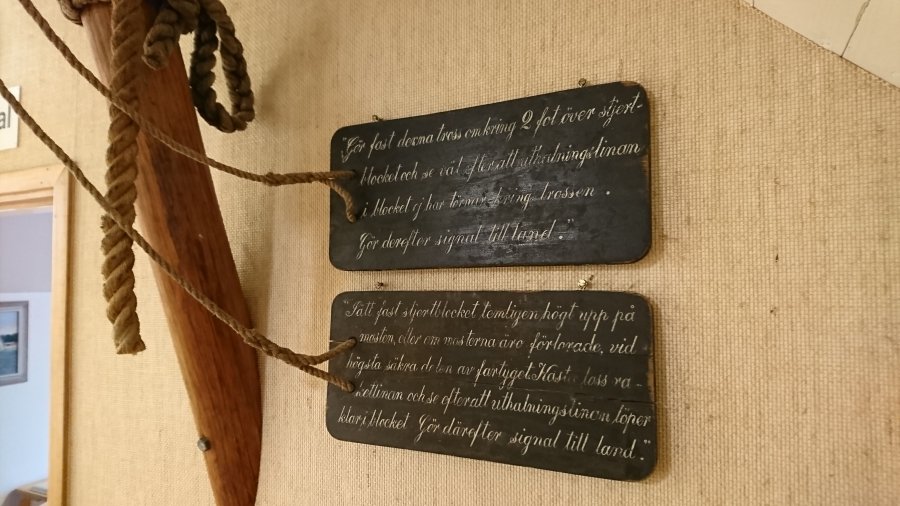 al
"Gör fast denna tross omkring 2 fot över stjert-
blocket och se väl efter att uthalningslinan
i blocket ej har törnar kring trossen.
Gör derefter signal till land."
"Sätt fast stjertblocket temligen högt upp på
masten, eller om masterna äro förlorade, vid
högsta säkra delen av fartyget. Kasta loss ra-
kettlinan och se efter att uthalningslinan löper
klar i blocket Gör därefter signal till land."